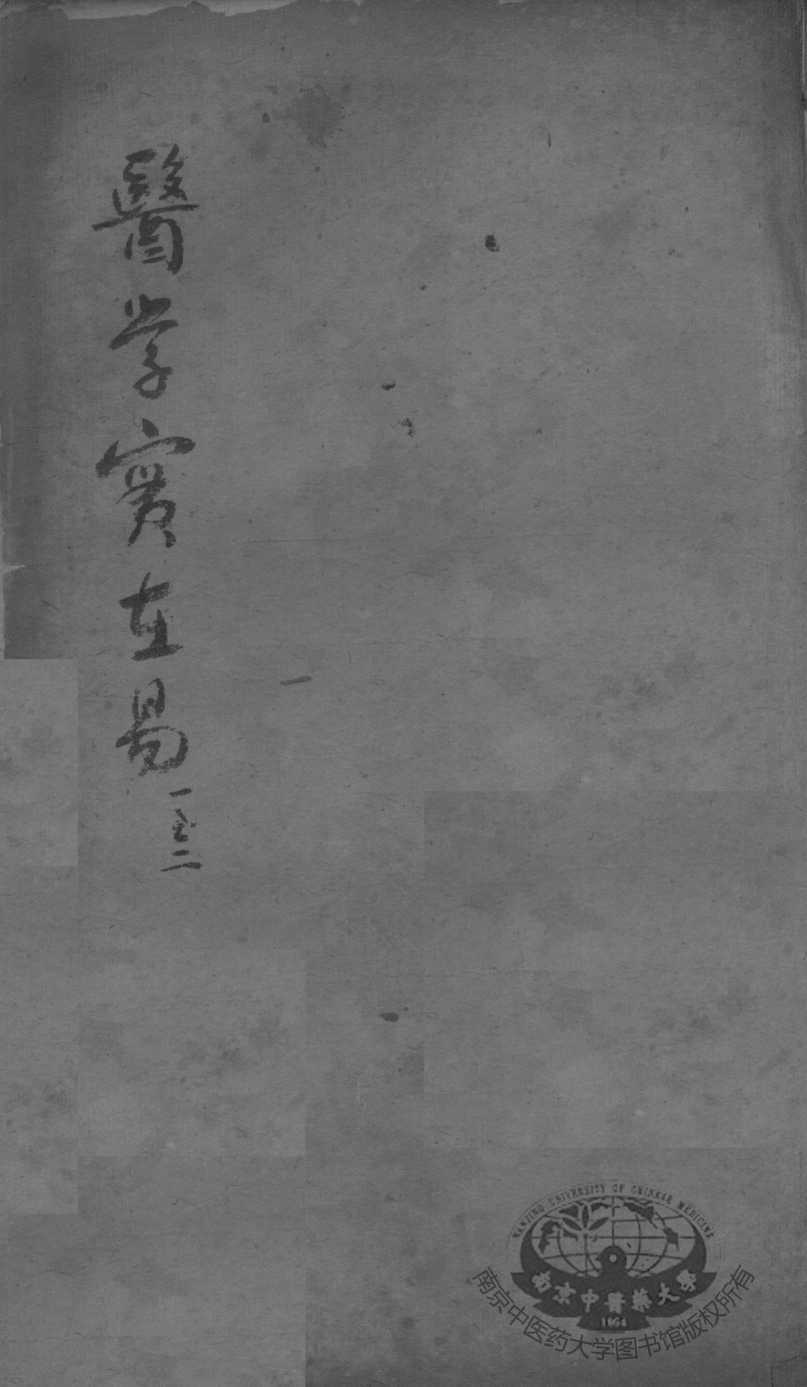 醫学實在易
一至二
NANJING UNIVERSITY OF CHINESE MEDICINE
南京中醫藥大學
1954
南京中医药大学图书馆版权所有